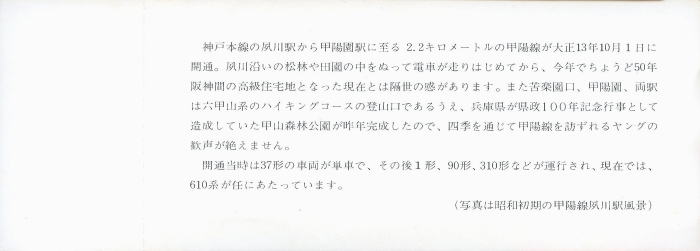 神戸本線の夙川駅から甲陽園駅に至る 2.2キロメートルの甲陽線が大正13年10月１日に
開通。夙川沿いの松林や田園の中をぬって電車が走りはじめてから、今年でちょうど50年
阪神間の高級住宅地となった現在とは隔世の感があります。また苦楽園口、甲陽園、両駅
は六甲山系のハイキングコースの登山口であるうえ、兵庫県が県政１００年記念行事として
造成していた甲山森林公園が昨年完成したので、四季を通じて甲陽線を訪ずれるヤングの
歓声が絶えません。
開通当時は37形の車両が単車で、その後１形、90形、310形などが運行され、現在では、
610系が任にあたっています。
（写真は昭和初期の甲陽線夙川駅風景）